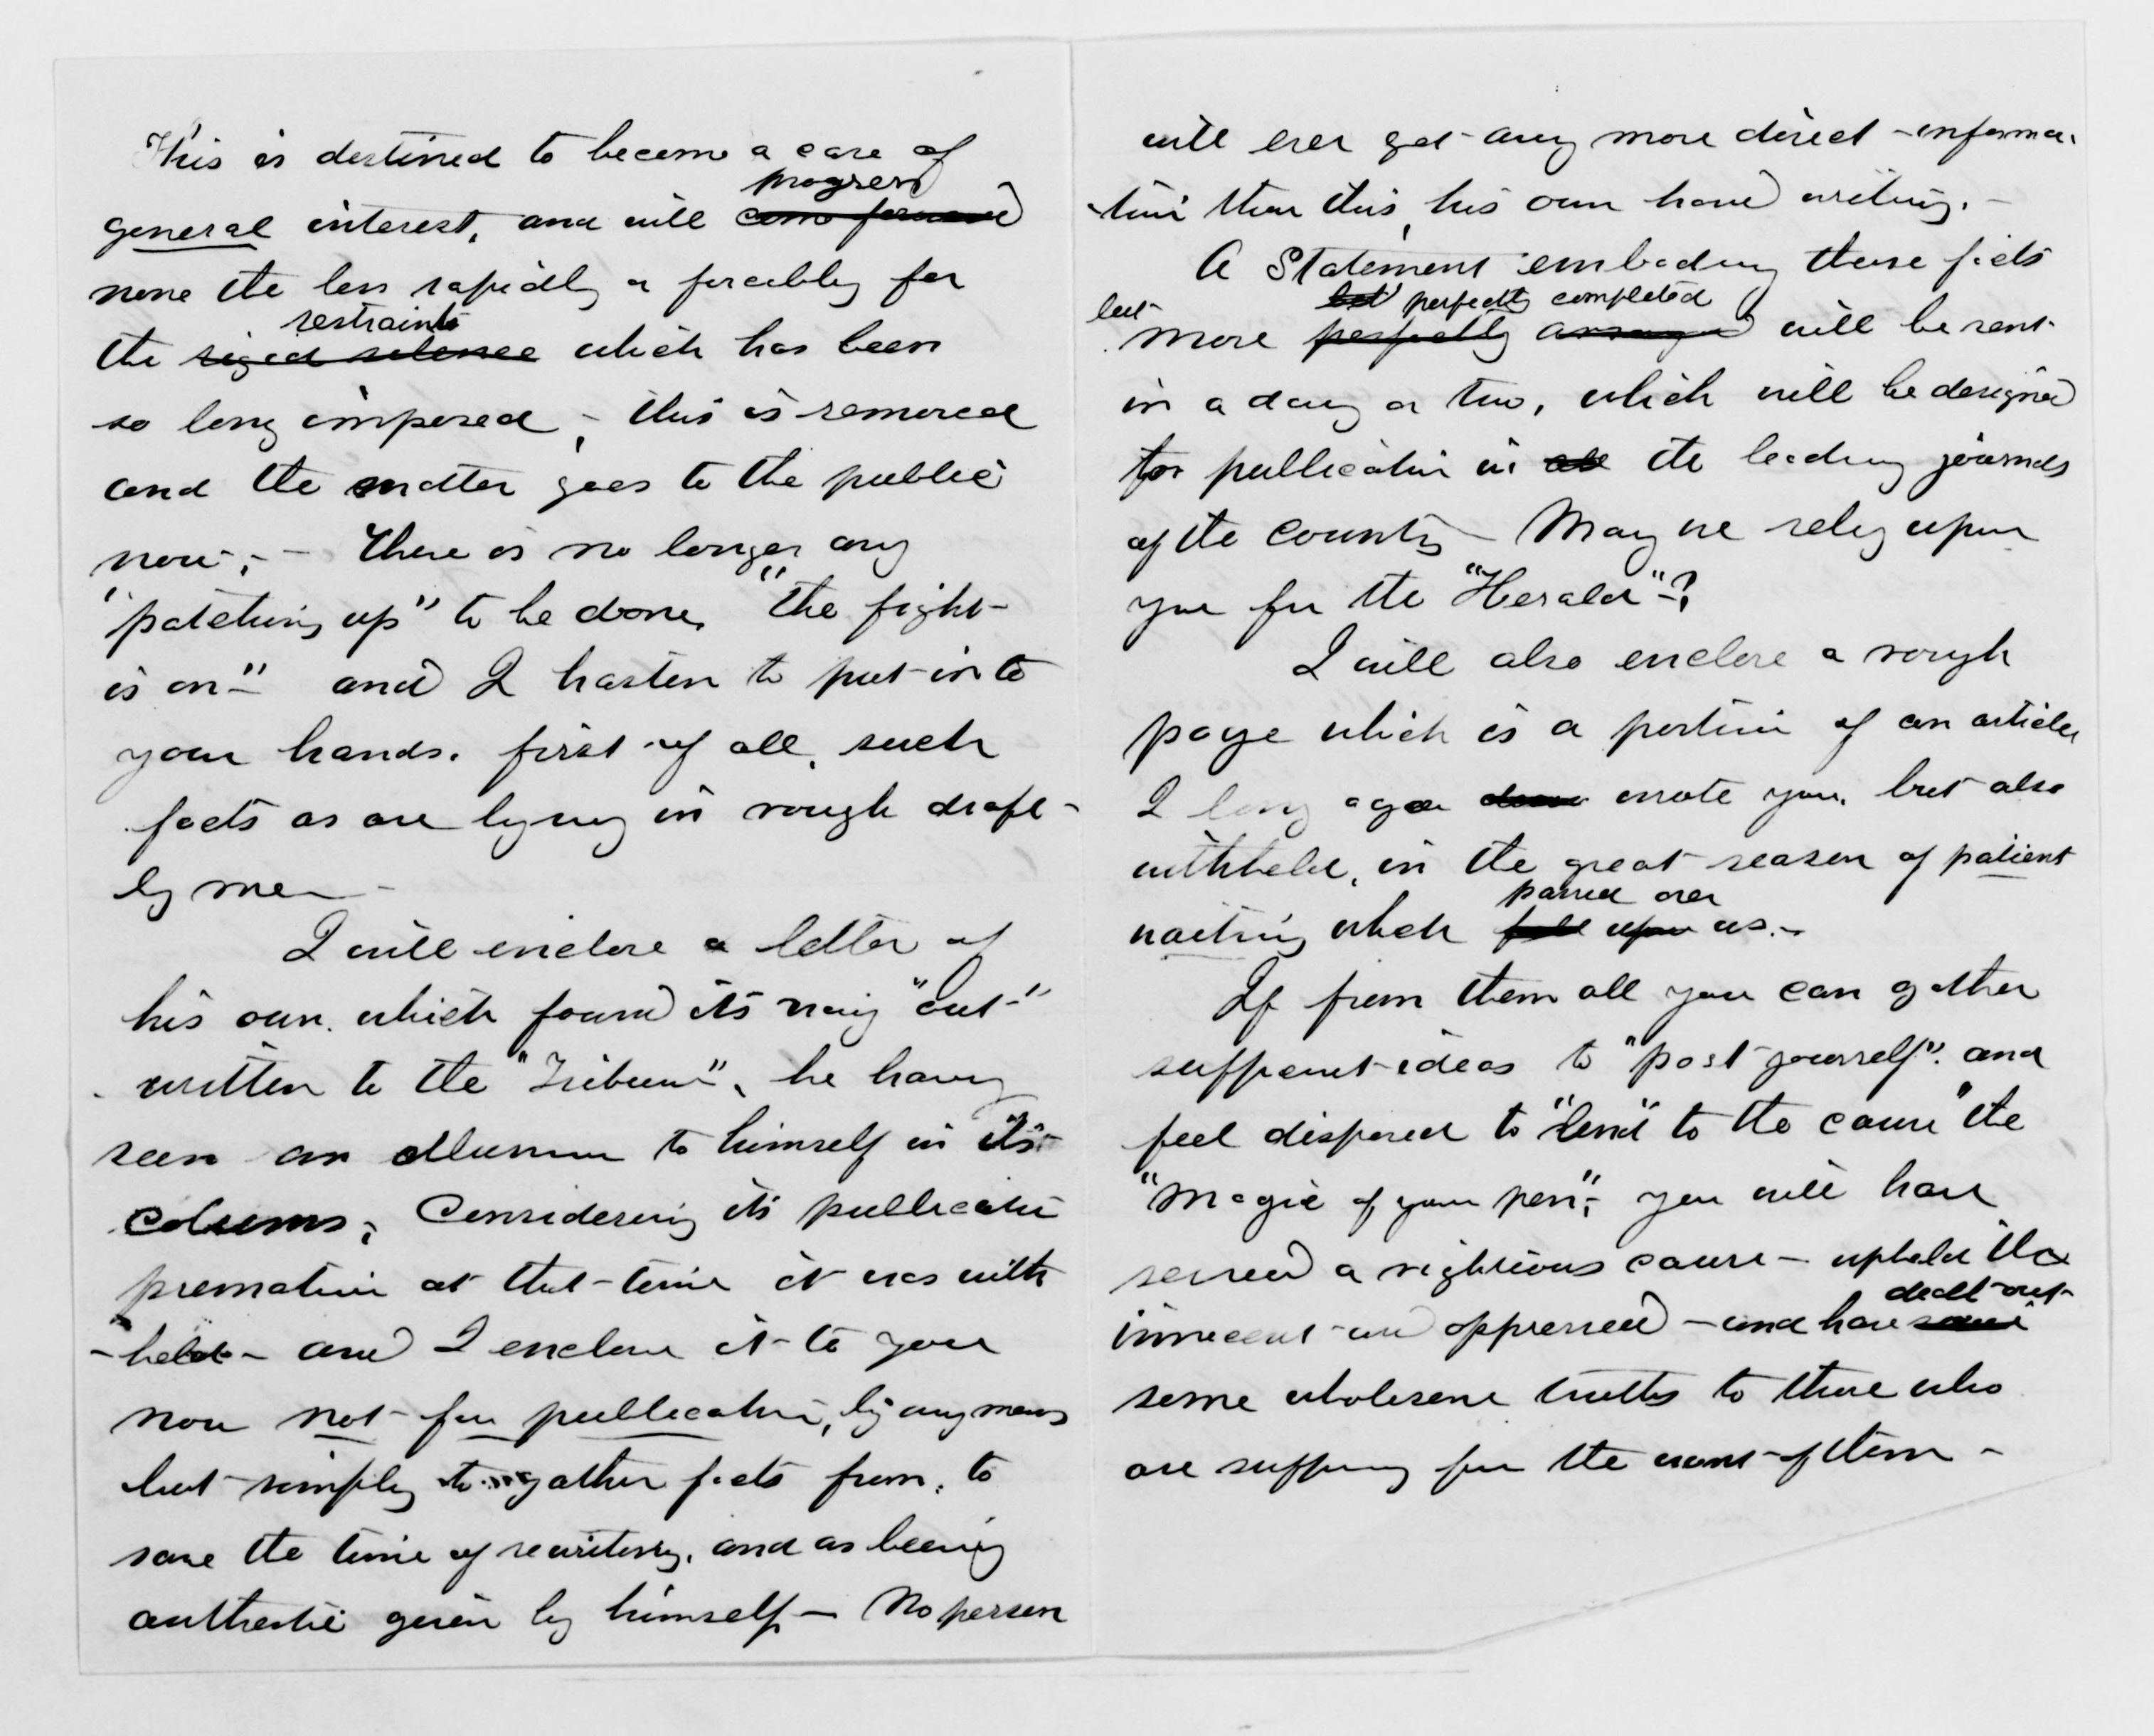 This is destined to become a case of
progress
general interest, and will come forward
none the less rapidly or forcibly for
restraints
the rigid silence which has been
so long imposed, - this is removed
and the matter goes to the public
now, - There is no longer any
"patching up" to be done, "the fight
is on" - and I hasten to put into
your hands. first of all, such
facts as are lying in rough draft -
by me -
I will enclose a letter of
his own. which found its way "out"
written to the "Tribune", he having
seen an allusion to himself in its
colums, Considering its publication
premature at that time it was with
- held - and I enclose it to you
now not for publication, by any means
but simply to gather facts from, to
save the time of rewriting, and as being
authentic given by himself - No person
will ever get any more direct informa-
-tion than this, his own hand writing. -
A Statement embodying these facts
but perfectly completed
but more perfectly arranged will be sent
in a day or two, which will be designed
for publication in all the leading journals
of the country - May we rely upon
you for the "Herald" - ?
I will also enclose a rough
page which is a portion of an article
I long ago wrote you, but also
withheld, in the great season of patient
passed over
waiting which fell upon us. -
If from them all you can gather
sufficient ideas to "post yourself" and
feel disposed to "lend" to the cause "the
"Magic of your pen", you will have
served a rightious cause - upheld the
dealt out
innocent and oppressed - and have
some wholesome truths to those who
are suffering for the want of them -